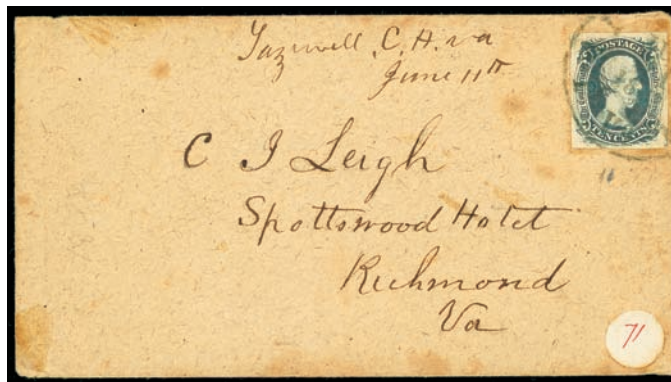 Tazewell C. H. va
June 11th
POSTAGE
TEN CENTS
C J Leigh
Spottswood Hotel
Richmond
Va
71